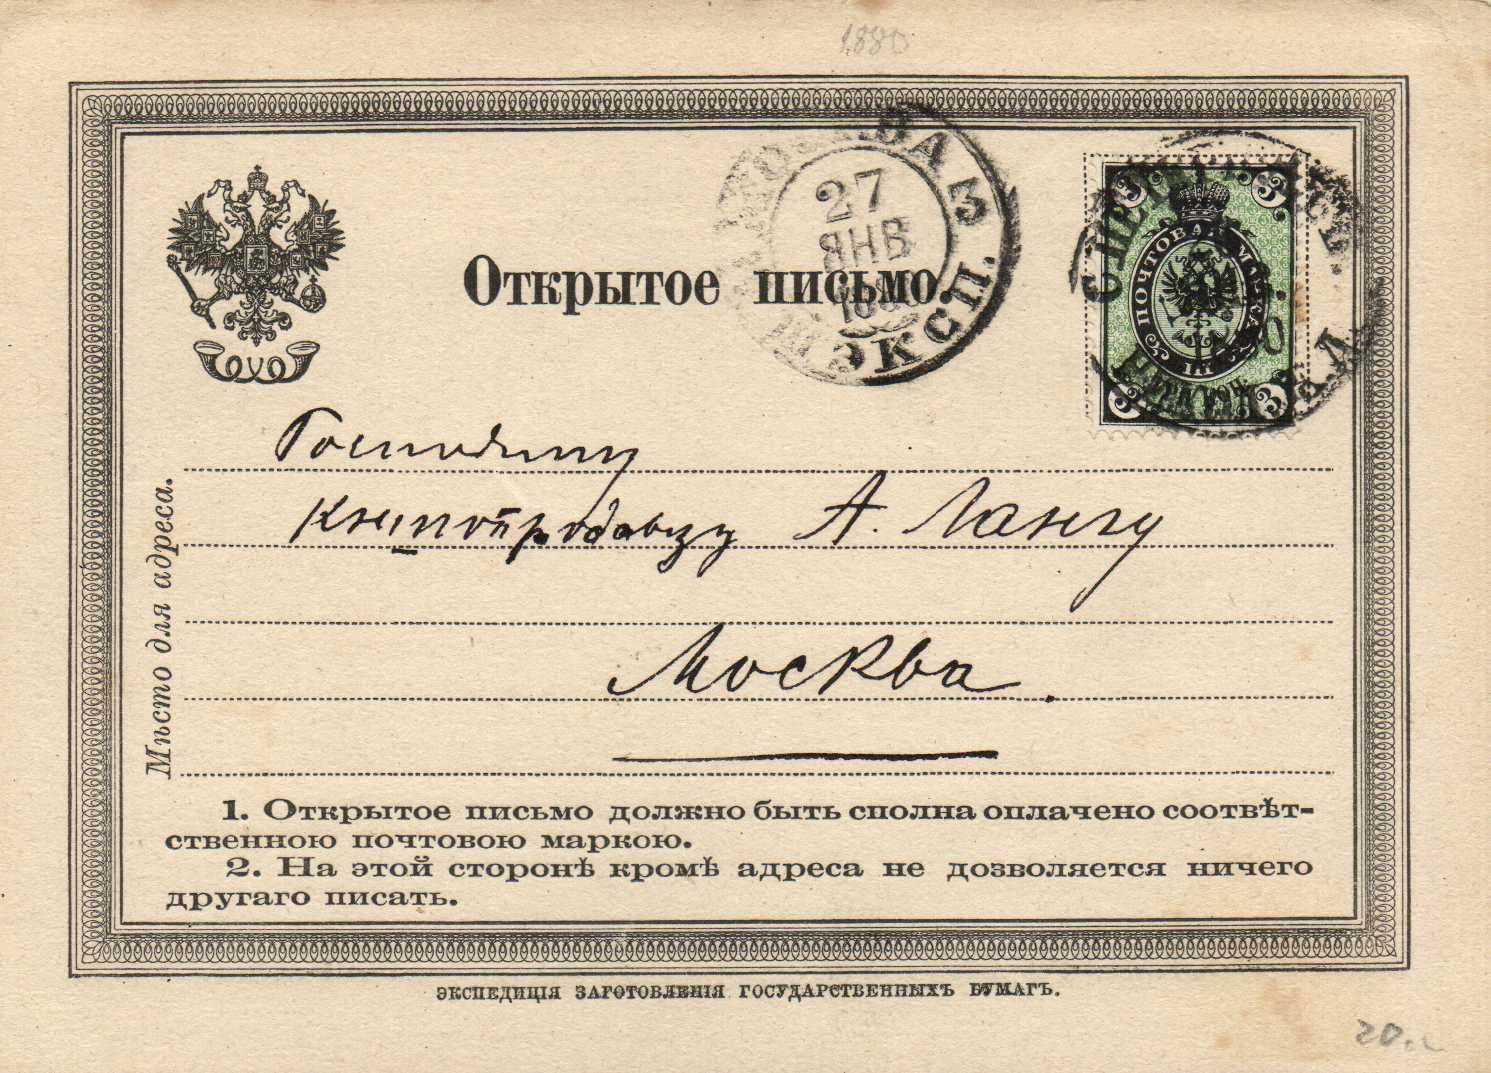 1880
МОСКВА 3
27
ЯНВ
ЭКСП.
3 3
ПОЧТОВАЯ МАРКА
3 3
Открытое письмо.
Мѣсто для адреса.
Господину
Книгопродавцу А. Лангу
Москва.
1. Открытое письмо должно быть сполна оплачено соотвѣт-
ственною почтовою маркою.
2. На этой сторонѣ кромѣ адреса не дозволяется ничего
другаго писать.
ЭКСПЕДИЦІЯ ЗАГОТОВЛЕНІЯ ГОСУДАРСТВЕННЫХЪ БУМАГЪ.